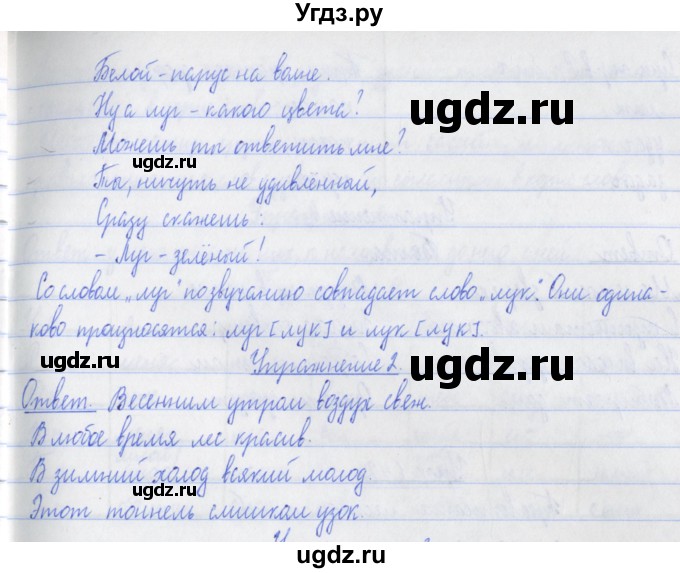 Угдз.ру
Белой - парус на ваше.
Ну а луг - какого цвета?
ugdz.ru
Можешь ты ответить мне?
ugdz.ru
Ты, ничуть не удивлённый,
Сразу скажешь:
ugdz.ru
- Луг - зелёный!
Со словом „луг" по звучанию совпадает слово „лук". Они одина-
ково произносятся: луг [лук] и лук [лук].
ugdz.ru
ugdz.ru
Упражнение 2.
Ответ. Весенним утром воздух свеж.
В любое время лес красив.
В зимний холод всякий молод.
ugdz.ru
Этот тоннель слишком узок.
ugdz.ru
ugdz.ru